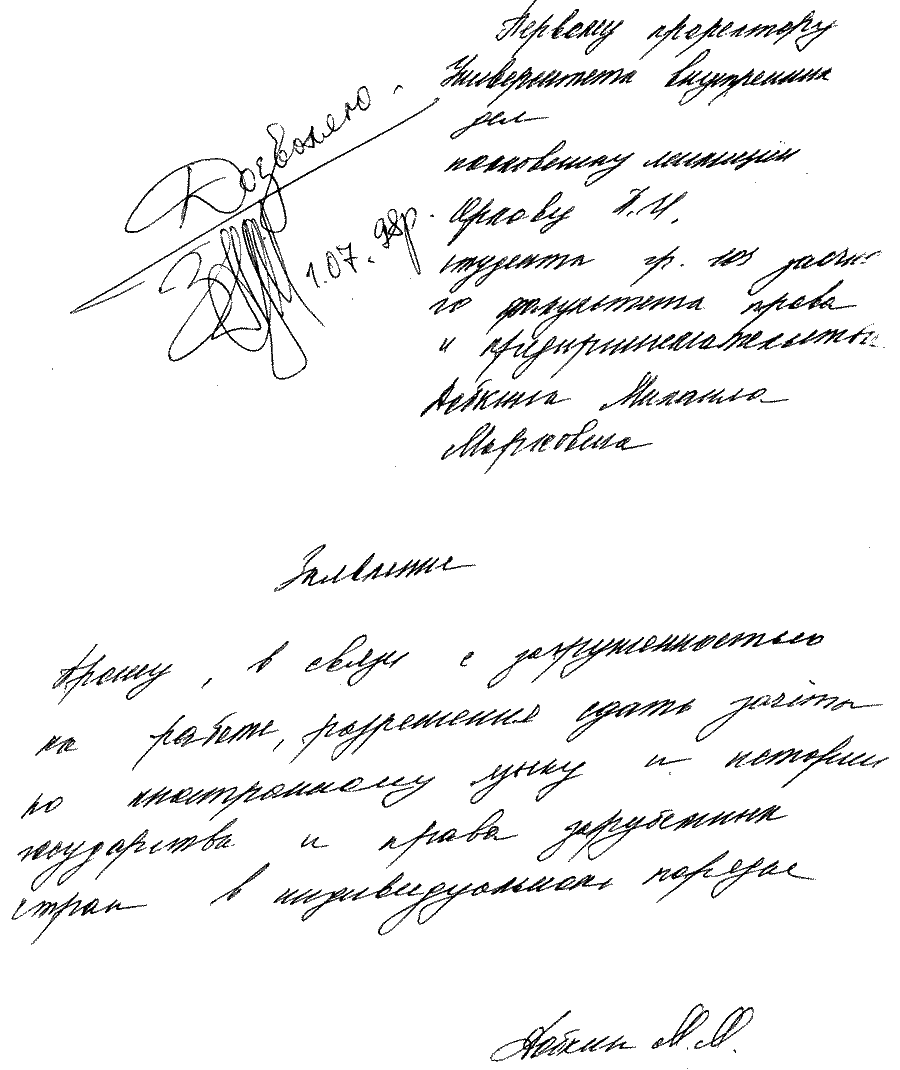 Первому проректору
Университета внутренних
дел
полковнику милиции
Орлову П.И.
студента гр. 103 заочно
го факультета права
и предпринимательства
Добкина Михаила
Марковича
Дозволяю.
1.07.98р.
Заявление
Прошу, в связи с загруженностью
на работе, разрешения сдать зачёты
по иностранному языку и истории
государства и права зарубежных
стран в индивидуальном порядке
Добкин М.М.